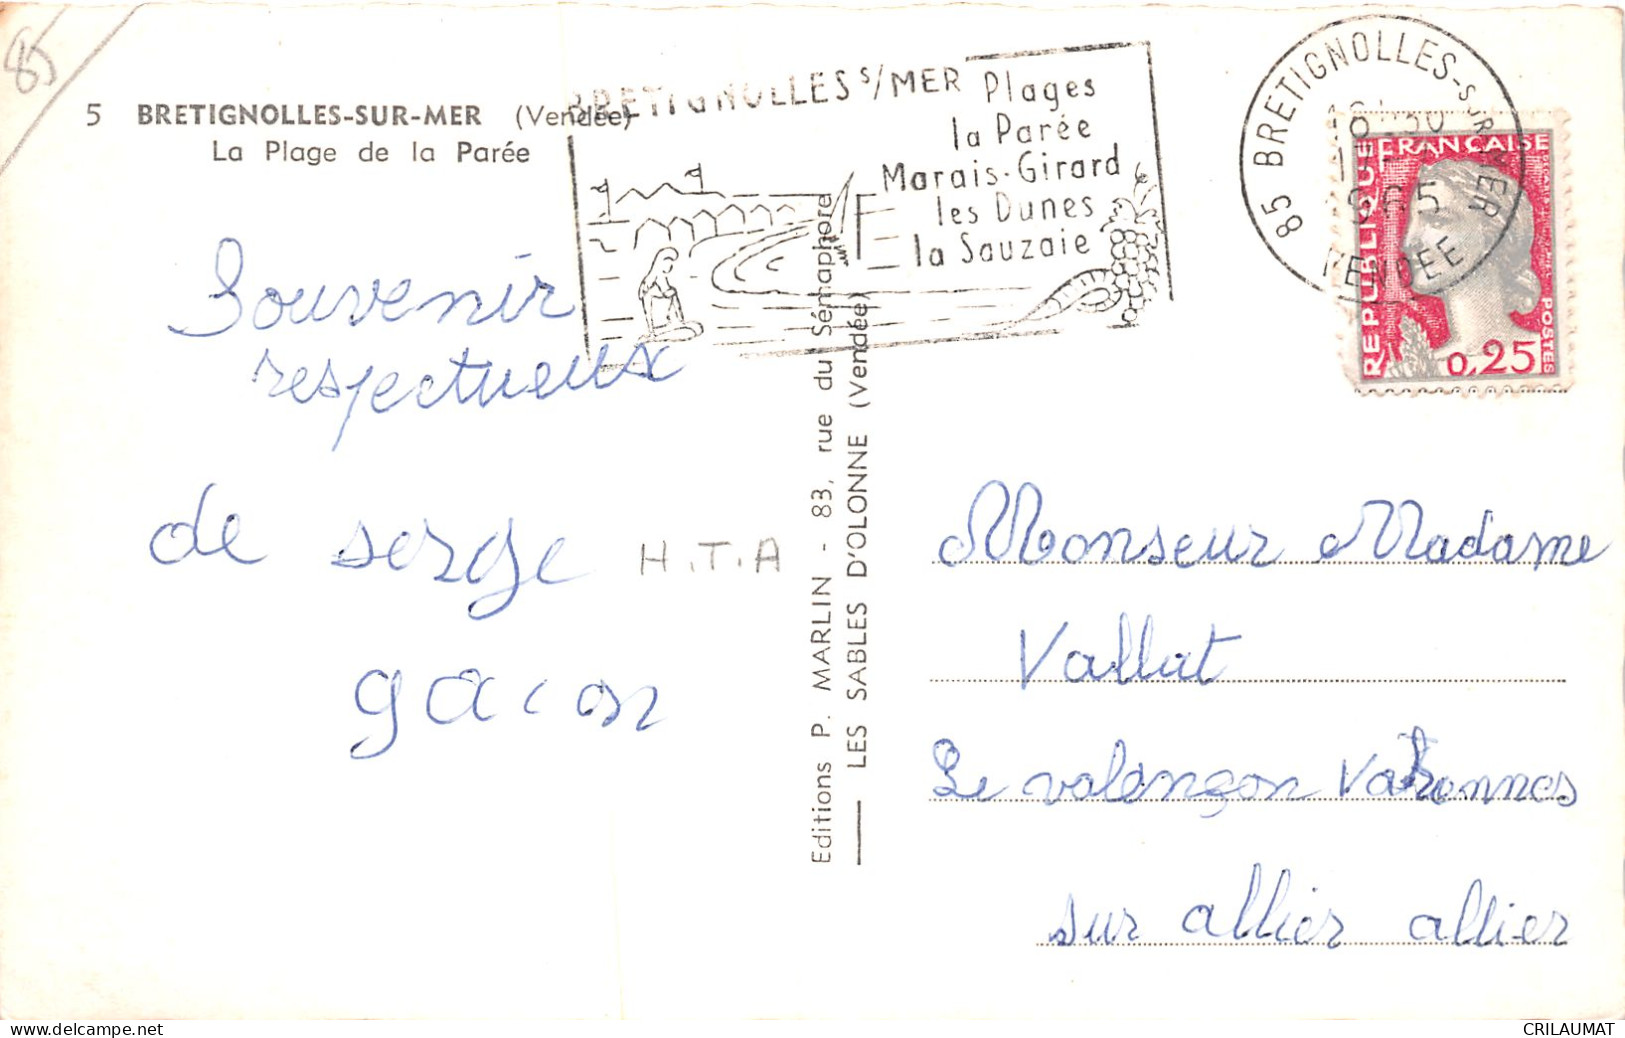 85
5 BRETIGNOLLES-SUR-MER (Vendée)
La Plage de la Parée
BRETIGNOLLES S/MER
Plages
la Parée
Marais-Girard
les Dunes
la Sauzaie
85 BRETIGNOLLES-SUR-MER
VENDÉE
REPUBLIQUE FRANÇAISE
POSTES
0,25
Souvenir
respectueux
de serge
gacon
H.T.A
Editions P. MARLIN - 83, rue du Sémaphore
LES SABLES D'OLONNE (Vendée)
Monseur Madame
Vallat
Le valençon Varennes
sur allier allier
delcampe.net
CRILAUMAT